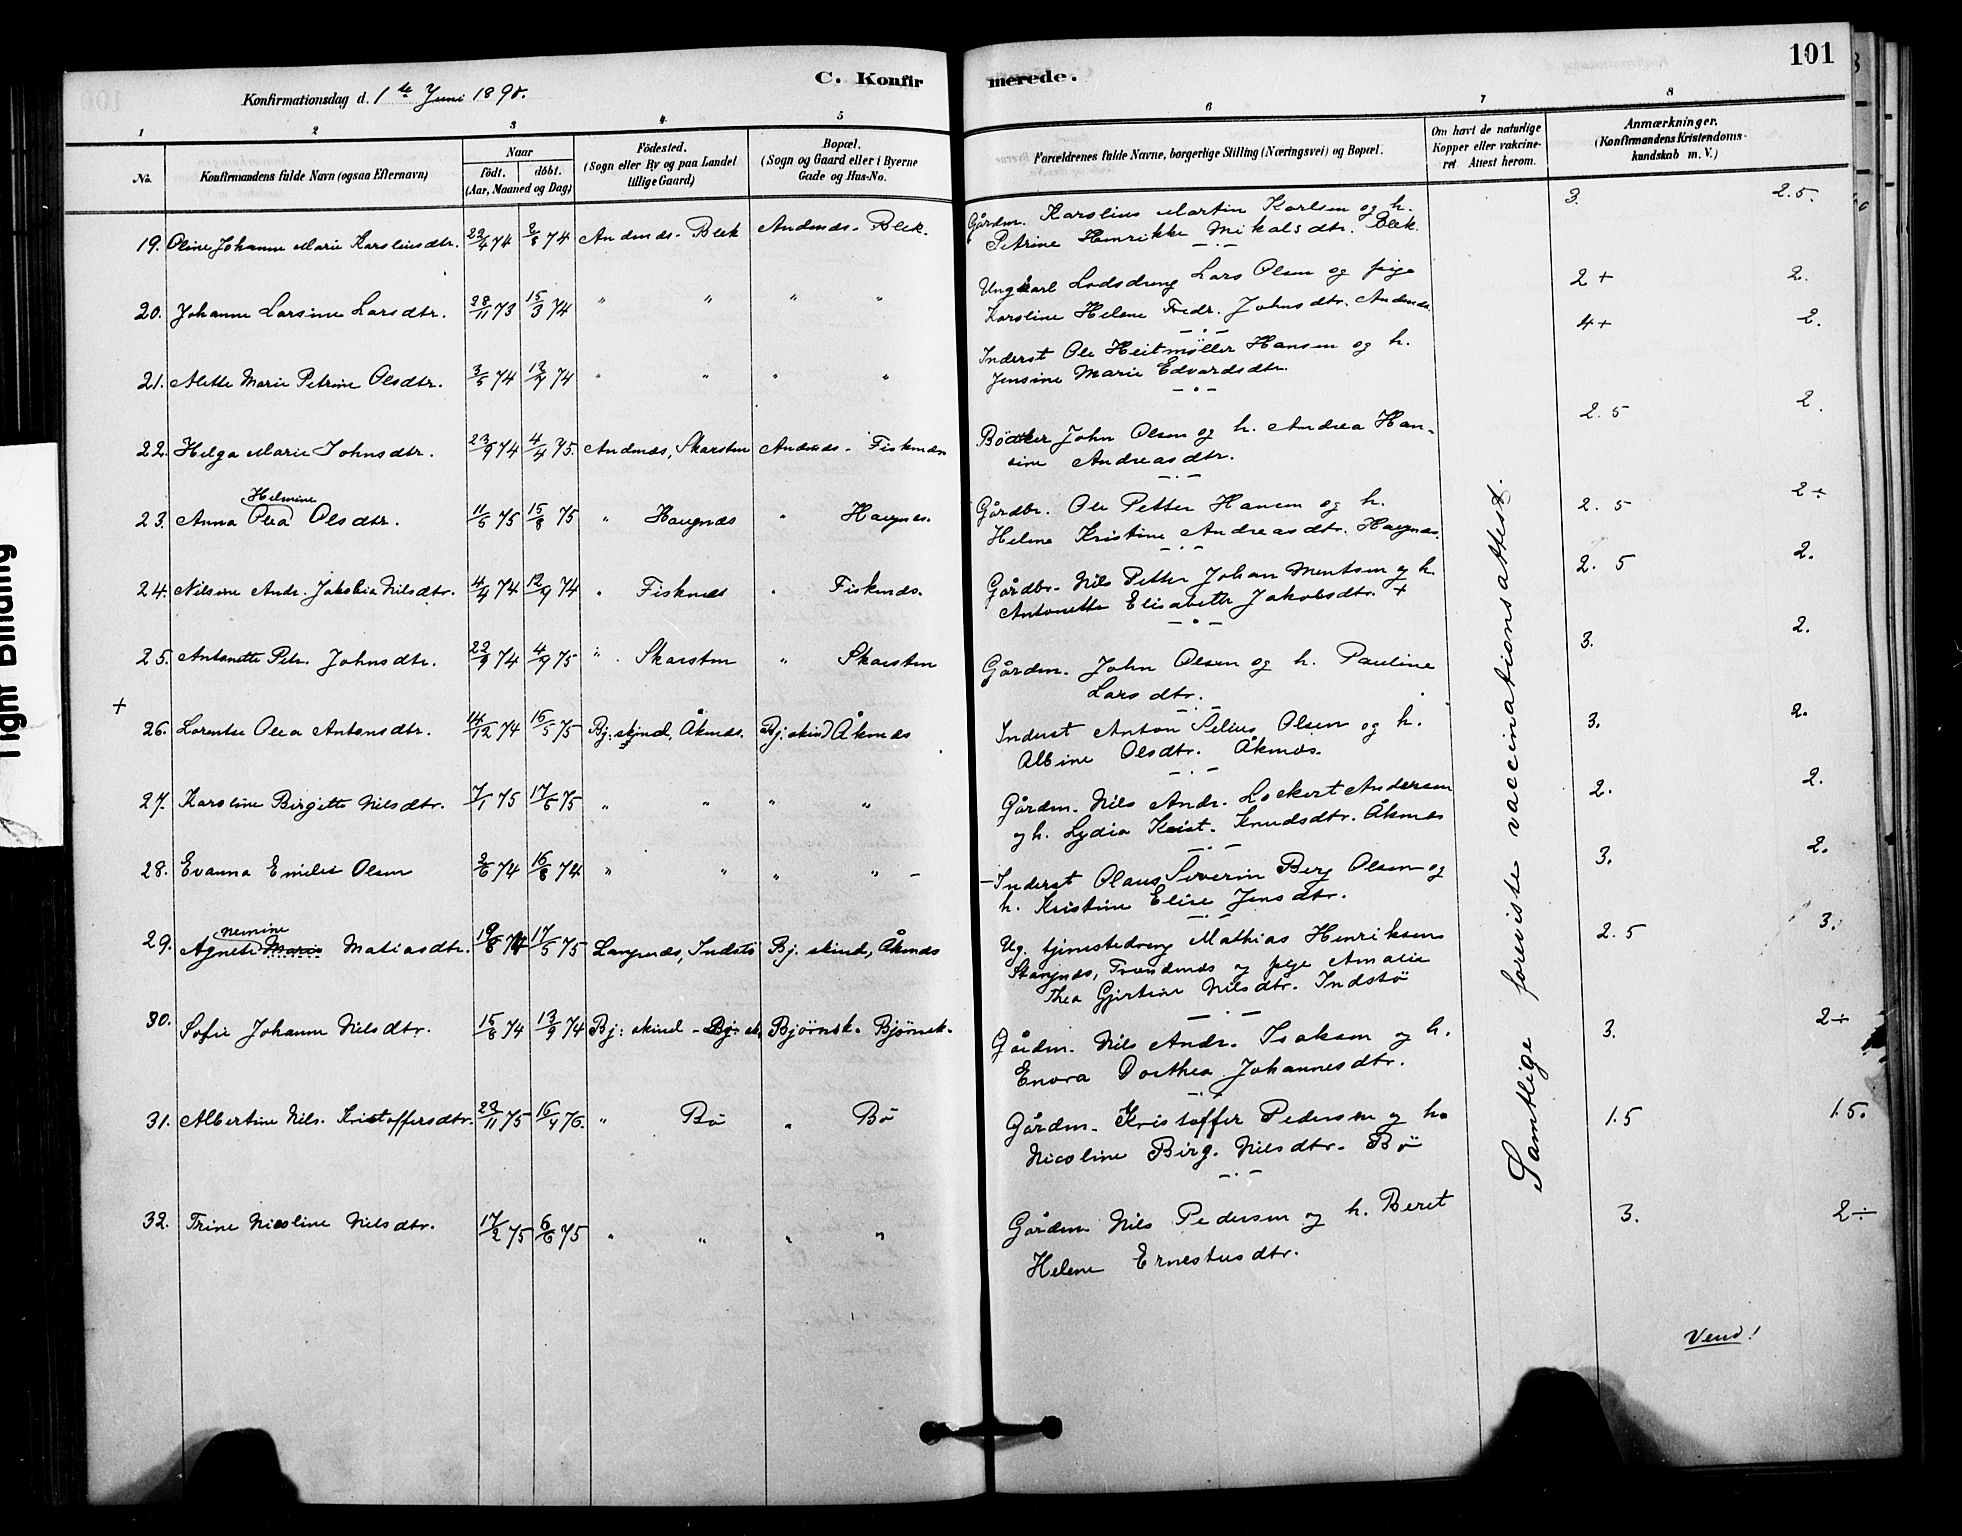 C. Konfirmerede.
101
Konfirmationsdag d. 1ste Juni 1890.
1 2 3 4 5 6 7 8
No. Konfirmandens fulde Navn (ogsaa Efternavn)
Naar
födt. döbt.
(Aar, Maaned og Dag)
Födested.
(Sogn eller By og paa Landet
tillige Gaard)
Bopæl.
(Sogn og Gaard eller i Byerne
Gade og Hus-No.
Forældrenes fulde Navne, borgerlige Stilling (Næringsvei) og Bopæl.
Om havt de naturlige
Kopper eller vakcine-
ret Attest herom.
Anmærkninger.
(Konfirmandens Kristendoms-
kundskab m. V.)
19. Oline Johanne Marie Karoliusdtr. 22/4 74 2/8 74 Andenæs - Blek Andenæs - Blek. Gårdm. Karolius Martin Karlsen og h. 3. 2.5.
Petrine Henrikke Mikalsdtr. Blek.
20. Johanne Larsine Larsdtr. 28/11 73 15/3 74 " " " " Ungkarl Lodsdreng Lars Olsen og pige 2+ 2.
Karoline Helene Fredr. Johnsdtr. Andenæs
21. Alette Marie Petrine Olsdtr. 3/5 74 12/7 74 " " " " Inderst Ole Heitmøller Hansen og h. 4+ 2.
Jensine Marie Edvardsdtr.
22. Helga Marie Johnsdtr. 23/9 74 4/4 75. Andenæs, Skarsten Andenæs - Fiskenæs Bødker John Olsen og h. Andrea Han- 2.5 2.
sine Andreasdtr.
Helmine
23. Anna Olea Olsdtr. 11/5 75 15/8 75 " Haugnæs " Haugnæs. Gårdbr. Ole Petter Hansen og h. 2.5 2÷
Helene Kristine Andreasdtr. Haugnæs.
24. Nilsine Andr. Jakobia Nilsdtr. 4/4 74 12/9 74 " Fisknæs " Fiskenæs. Gårdbr. Nils Petter Johan Mentsen og h. 2.5 2.
Antonette Elisabeth Jakobsdtr. +
25. Antonette Petr. Johnsdtr. 22/9 74 4/9 75 " Skarsten " Skarsten Gårdm. John Olsen og h. Pauline 3. 2.
Larsdtr.
+ 26. Lorentse Olea Antonsdtr. 14/12 74 16/5 75 Bj: skjind, Åknæs. Bj: skind Åknæs Inderst Anton Selius Olsen og h. 3. 2.
Albine Olsdtr. Åknæs.
27. Karoline Birgitte Nilsdtr. 7/1 75 17/5 75 " " " " Gårdm. Nils Andr. Lockert Andersen 2. 2.
og h. Lydia Krist. Knudsdtr. Åknæs
28. Evanna Emilie Olsen 2/6 74 16/8 74 " " " " - - Inderst Olaus Severin Berg Olsen og 3. 2.
h. Kristine Elise Jensdtr.
nemine
29. Agnete Marie Matiasdtr. 19/8 74 17/5 75 Langenæs, Indstø Bj. skind, Åknæs Ug. tjenestedreng Mathias Henriksen 2.5 3.
Stangnæs, Trondenæs og pige Amalie
Thea Gjertine Nilsdtr. Indstø
30. Sofie Johanne Nilsdtr. 15/8 74 13/9 74 Bj: skind - Bj: sk. Bjørnsk. Bjørnsk. Gårdm. Nils Andr. Isaksen og h. 3. 2÷
Enora Dorthea Johannesdtr.
31. Albertine Nils. Kristoffersdtr. 23/11 75 16/4 76. " Bø " Bø Gårdm. Kristoffer Pedersen og h. 1.5 1.5.
Nicoline Birg. Nilsdtr. Bø
32. Trine Nicoline Nilsdtr. 17/2 75 6/6 75 " " " " Gårdm. Nils Pedersen og h. Beret 3. 2÷
Helene Ernestusdtr.
Samtlige foreviste vaccinationsattest.
Vend!
Tight Binding